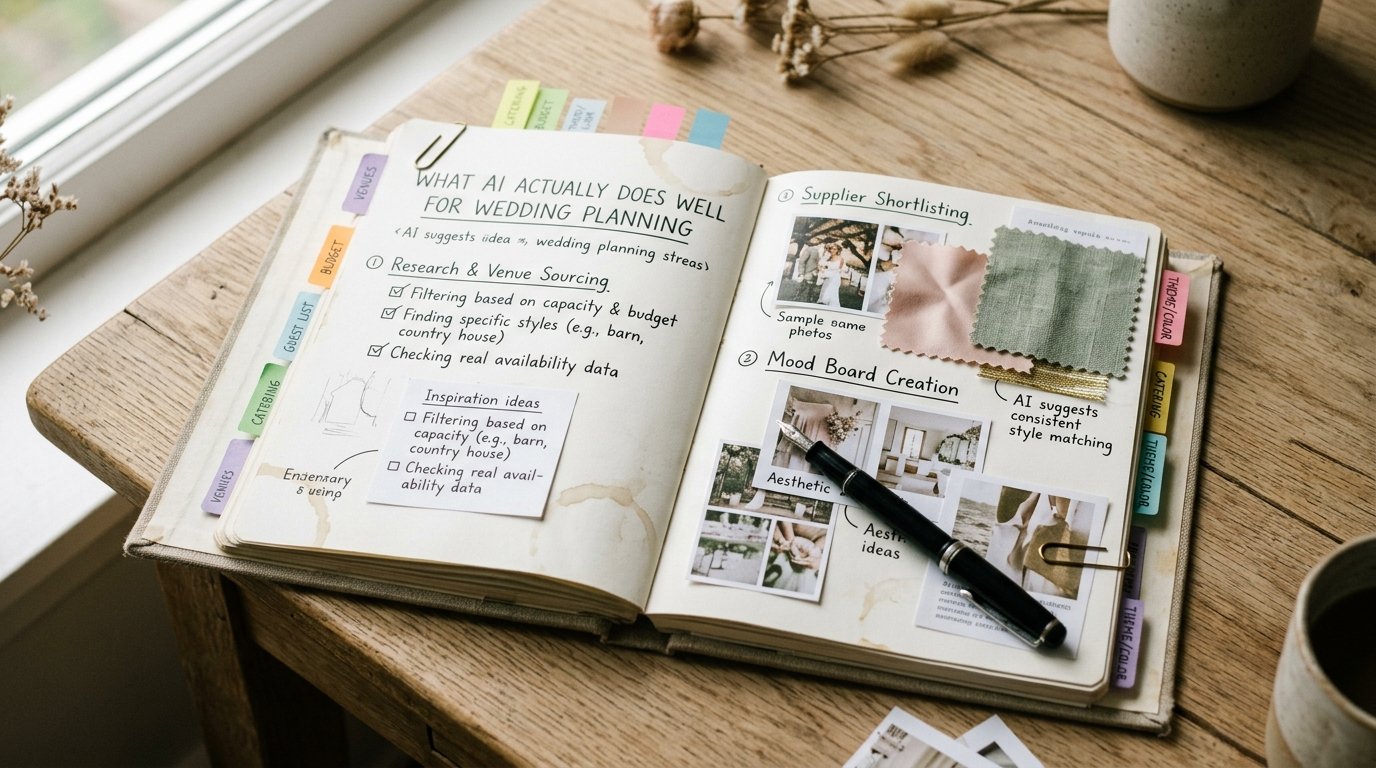 CATERING
BUDGET
VENUES
BUDGET
GUEST LIST
CATERING
VENUES
WHAT AI ACTUALLY DOES WELL
FOR WEDDING PLANNING
AI suggests wedding planning
① Research & Venue Sourcing
Filtering based on capacity & budget
Finding specific styles (e.g., barn,
country house)
Checking real availability data
Inspiration ideas
Filtering based on
capacity (e.g., barn,
country house)
Checking real avail-
ability data
② Supplier Shortlisting
Sample same
photos
② Mood Board Creation
AI suggests
consistent
style matching
Aesthetic
ideas
CATERING
THEME/COLOR
THEME/COLOR